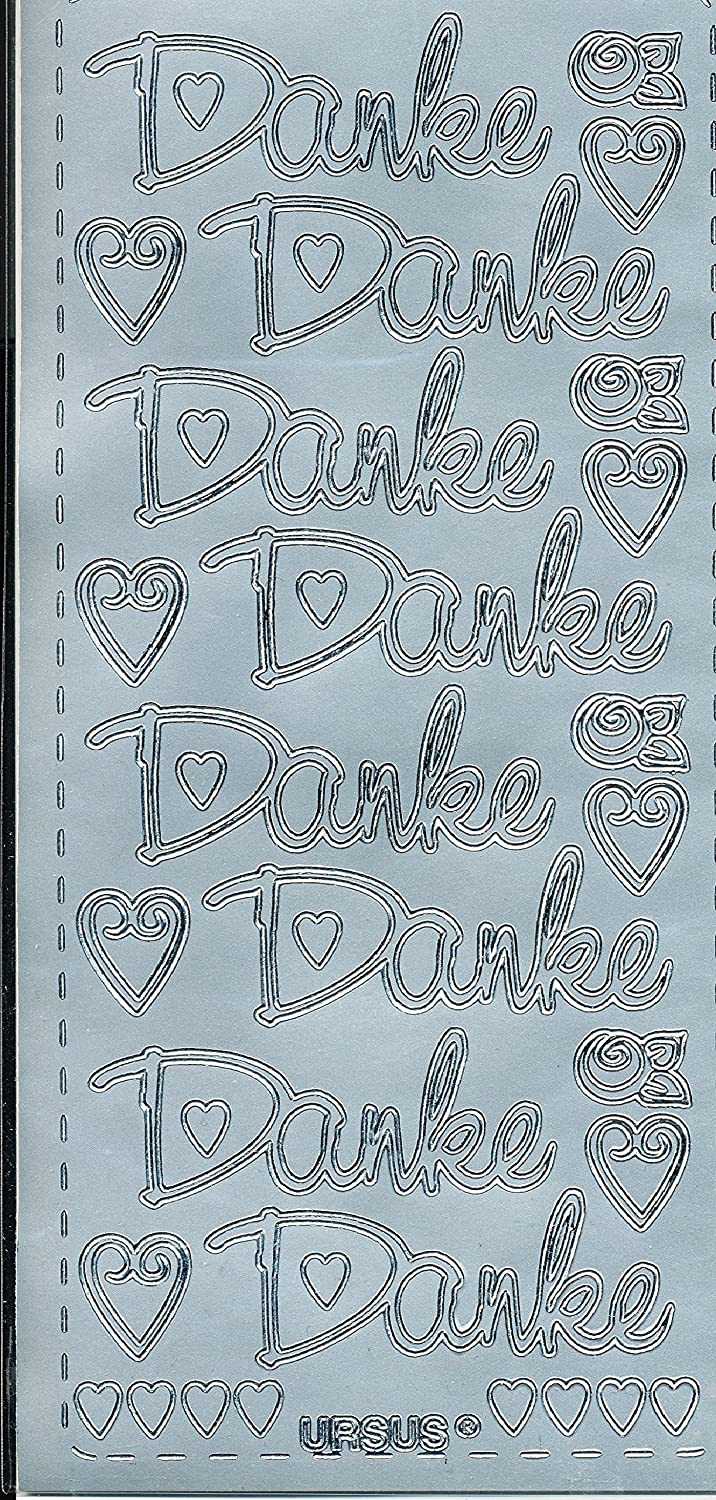 Danke
Danke
Danke
Danke
Danke
Danke
Danke
Danke
URSUS®